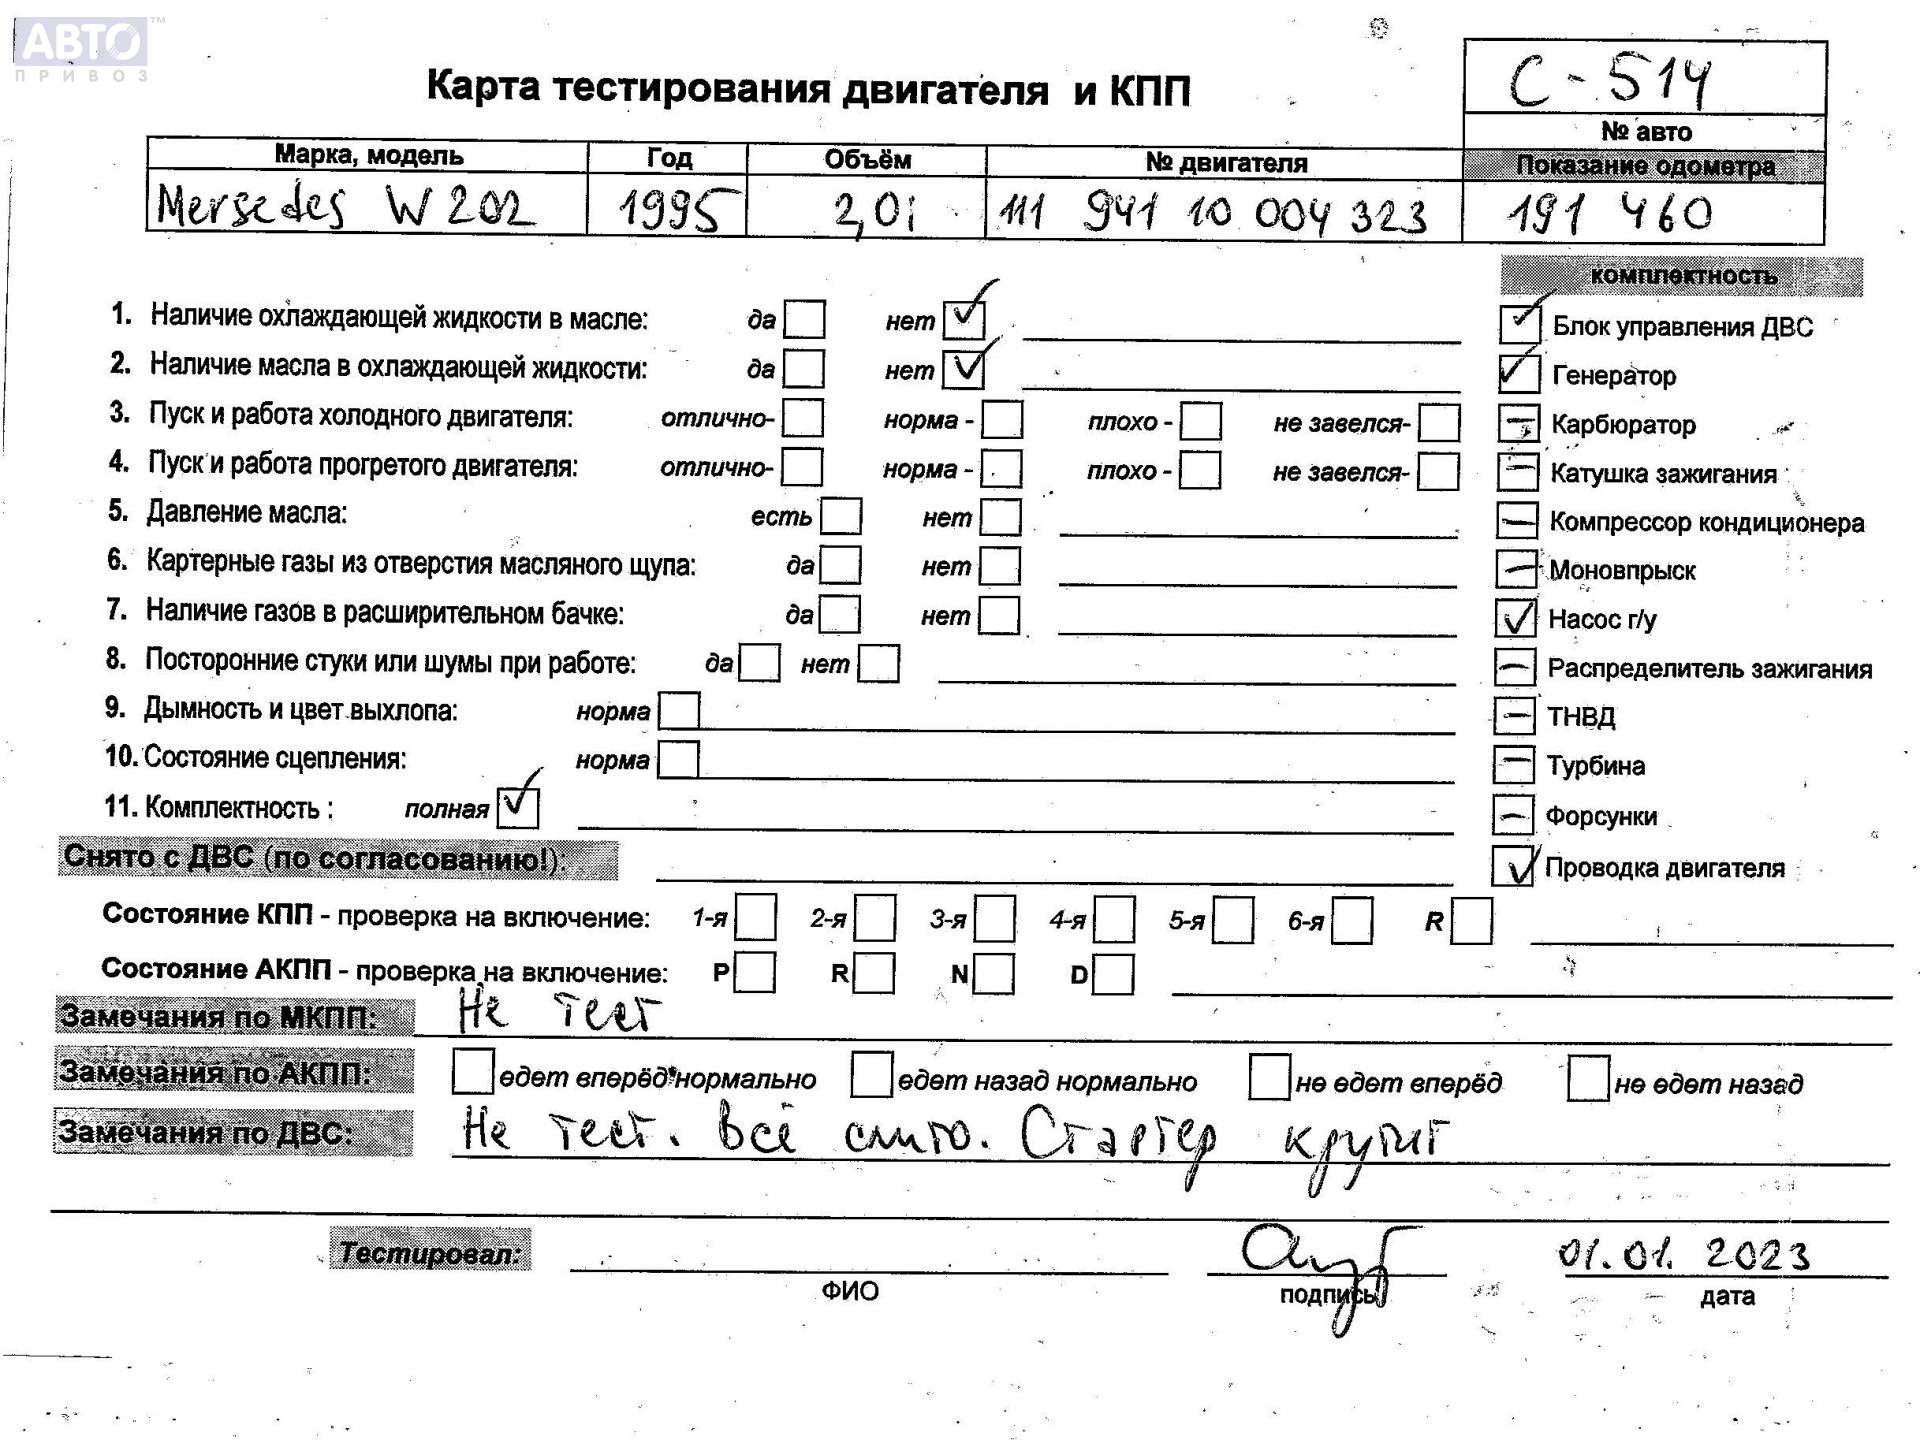 АВТО™
ПРИВОЗ
Карта тестирования двигателя и КПП
С-514
№ авто
Марка, модель Год Объём № двигателя Показание одометра
Mersedes W202 1995 2,0i 111 941 10 004 323 191 460
комплектность
1. Наличие охлаждающей жидкости в масле: да нет ✓ ✓ Блок управления ДВС
2. Наличие масла в охлаждающей жидкости: да нет ✓ ✓ Генератор
3. Пуск и работа холодного двигателя: отлично- норма - плохо - не завелся- — Карбюратор
4. Пуск и работа прогретого двигателя: отлично- норма - плохо - не завелся- — Катушка зажигания
5. Давление масла: есть нет — Компрессор кондиционера
6. Картерные газы из отверстия масляного щупа: да нет — Моновпрыск
7. Наличие газов в расширительном бачке: да нет ✓ Насос г/у
8. Посторонние стуки или шумы при работе: да нет — Распределитель зажигания
9. Дымность и цвет выхлопа: норма — ТНВД
10. Состояние сцепления: норма — Турбина
11. Комплектность : полная ✓ — Форсунки
Снято с ДВС (по согласованию!): ✓ Проводка двигателя
Состояние КПП - проверка на включение: 1-я 2-я 3-я 4-я 5-я 6-я R
Состояние АКПП - проверка на включение: P R N D
Замечания по МКПП: Не тест
Замечания по АКПП: едет вперёд нормально едет назад нормально не едет вперёд не едет назад
Замечания по ДВС: Не тест. Всё слито. Стартер крутит
Тестировал: 01.01.2023
ФИО подпись дата